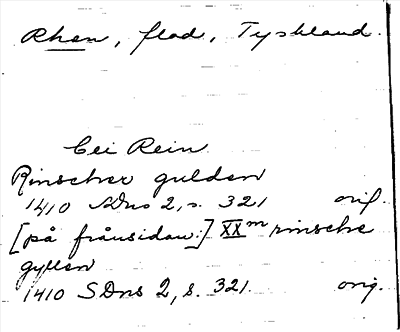 Rhen, flod, Tyskland.
bei Rein
Rinscher gulden
1410 SDns 2, s. 321 orig.
[på frånsidan:] XXm rinsche
gyllen
1410 SDns 2, s. 321. orig.